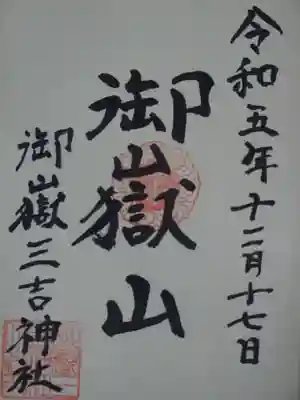 令和五年十二月十七日
御山嶽山
御山嶽三吉神社